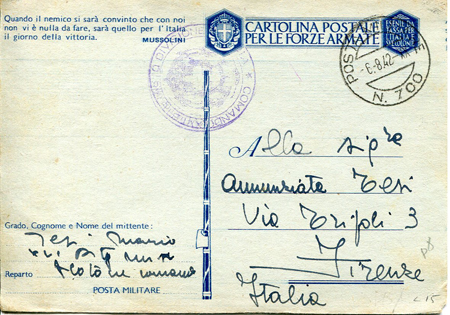 Quando il nemico si sarà convinto che con noi
non vi è nulla da fare, sarà quello per l'Italia
il giorno della vittoria.
MUSSOLINI
CARTOLINA POSTALE
PER LE FORZE ARMATE
ESENTE DA
TASSA PER
L'ITALIA E
POSTA
-6-8.42-
N. 700
COMANDO
Alla Sigra
Annunziata Tesi
Via Tripoli 3
Firenze
Italia
Grado, Cognome e Nome del mittente:
Tesi Mario
Reparto
POSTA MILITARE